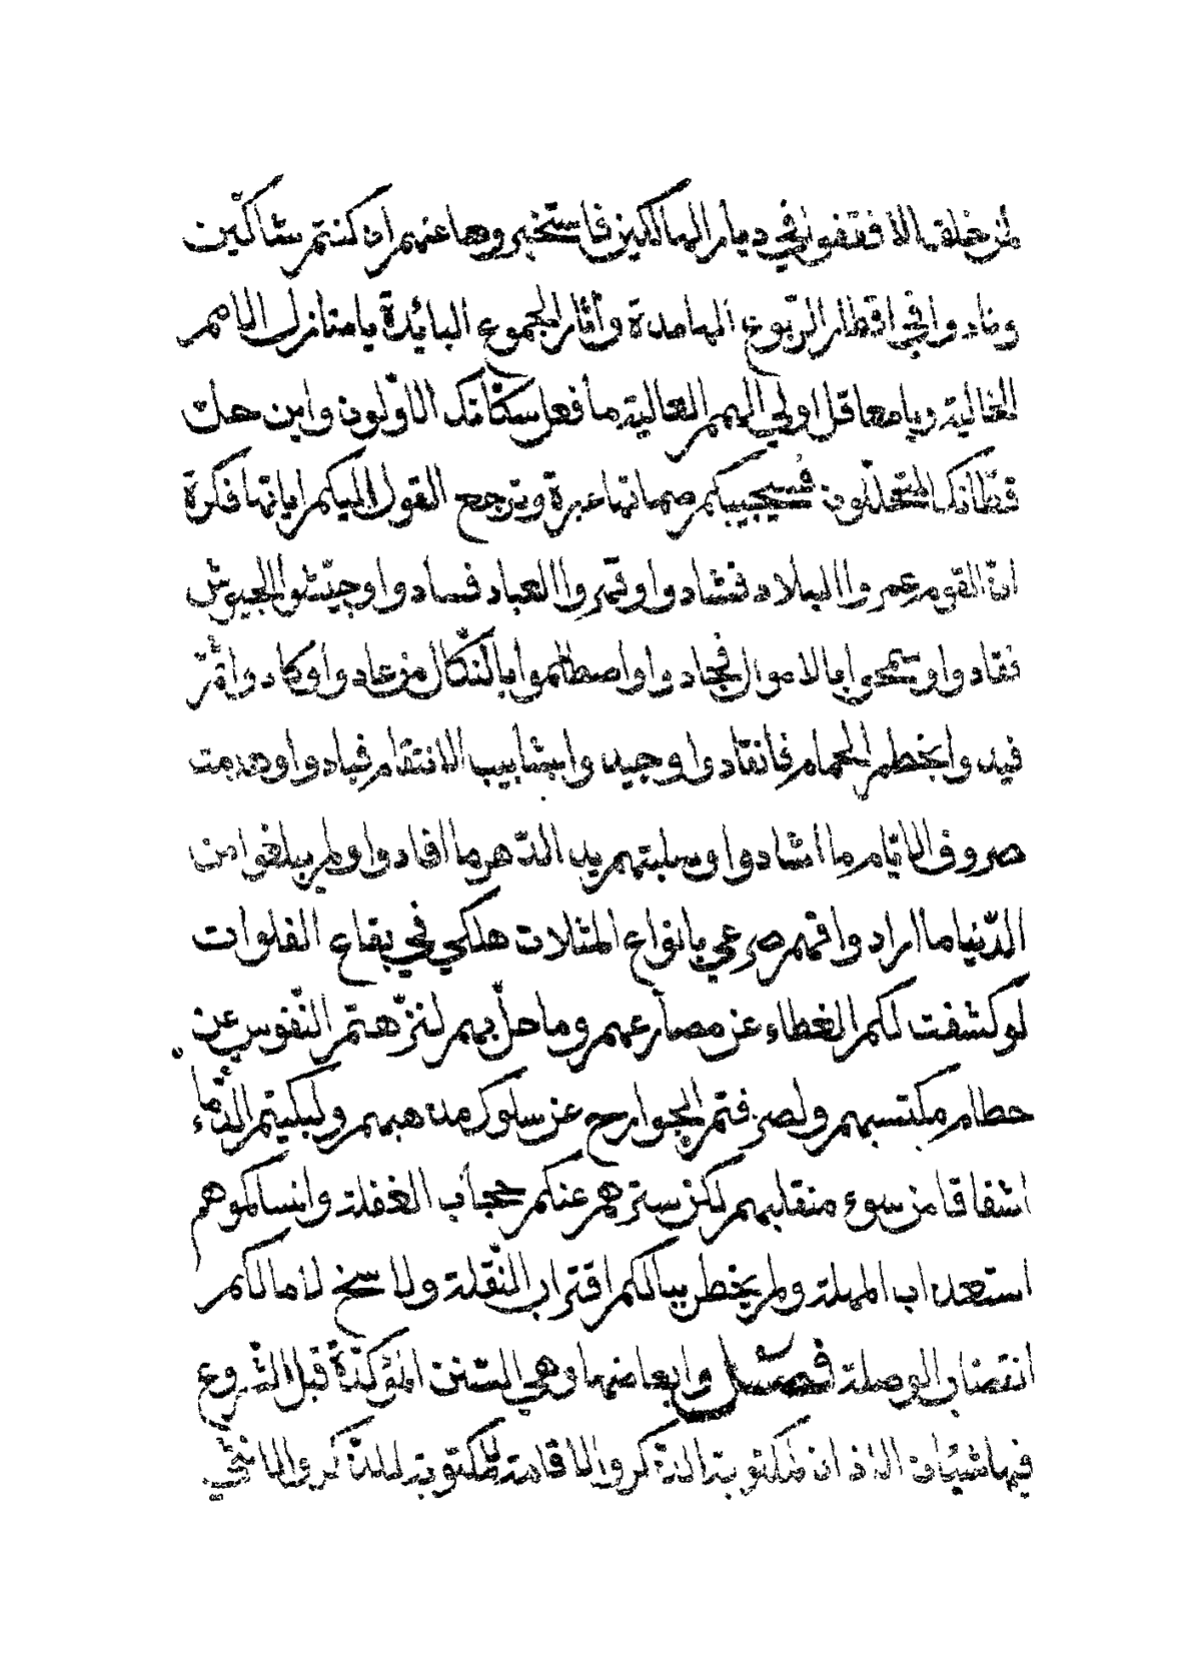 لمن خلقها الا فقفوا في ديار الهالكين فاستخبروها عنهم ان كنتم شاكّين
ونادوا في اقطار الرّبوع الهامدة وآثار الجموع البائدة يا منازل الامم
الخالية ويا معاقل اولي الهمم العالية ما فعل سكّانك الاوّلون واين حلّ
قطّانك المتحلّون فسيجيبكم صماتها عبرة وترجع القول اليكم اياتها فكرة
انّ القوم عمروا البلاد فشادوا وقمروا العباد فسادوا وجيّشوا الجيوش
فقادوا وسمحوا بالاموال فجادوا واصطلموا بالنّكال من عادوا وكادوا ثمّ
قيدوا بخطم الحمام فانقادوا وجيدوا بشآبيب الانتقام فبادوا وهدمت
صروف الايّام ما اشادوا وسلبتهم يد الدّهر ما افادوا ولم يبلغوا من
الدّنيا ما ارادوا فهم صرعى بانواع المثلات هلكى في بقاع الفلوات
لو كشفت لكم الغطاء عن مصارعهم وما حلّ بهم لنزّهتم النّفوس عن
حطام مكتسبهم ولصرفتم الجوارح عن سلوك مذهبهم ولبكيتم الدّماء
اشفاقا من سوء منقلبهم لكن سترهم عنكم حجاب الغفلة وانساكموهم
استعذاب المهلة ولم يخطر ببالكم اقتراب النّقلة ولا سنح لآمالكم
انقضاب الوصلة فصل وابعاضها وهي السّنن المؤكّدة قبل الشّروع
فيها شيئان الاذان لمكتوبة الذكر والاقامة لمكتوبة للذكر والانثى